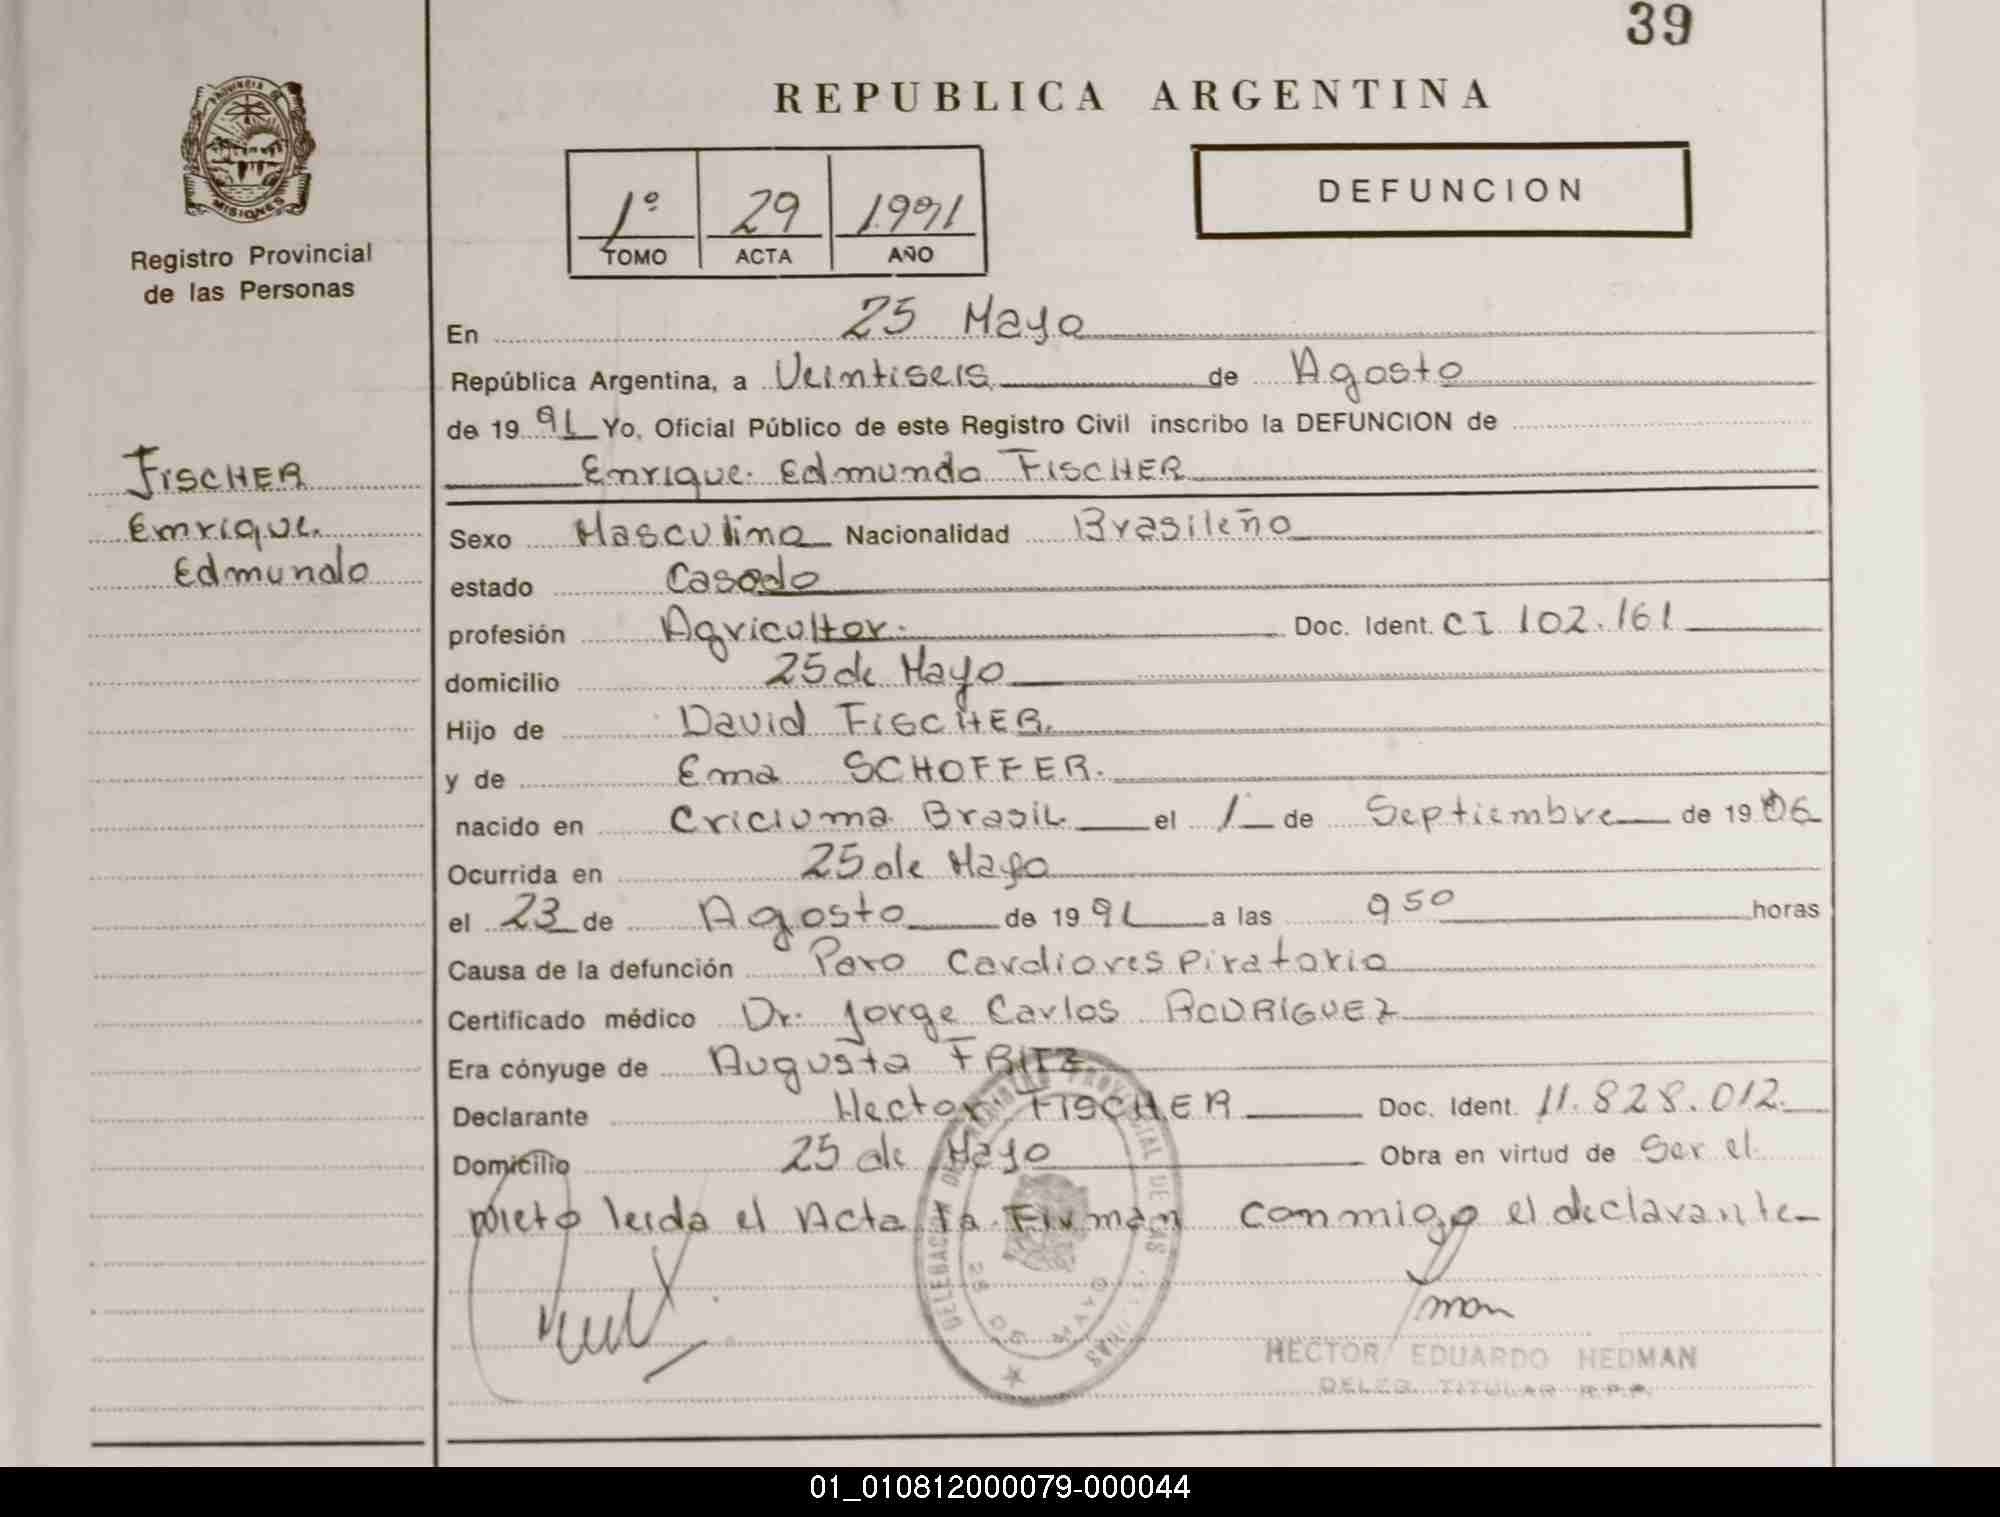 39
REPUBLICA ARGENTINA
PROVINCIA DE
MISIONES
Registro Provincial
de las Personas
1º 29 1991
TOMO ACTA AÑO
DEFUNCION
En 25 Mayo
República Argentina, a Veintiseis de Agosto
de 19 91 Yo, Oficial Público de este Registro Civil inscribo la DEFUNCION de
Enrique Edmundo FISCHER
FISCHER
Enrique
Edmundo
Sexo Masculino Nacionalidad Brasileño
estado Casado
profesión Agricultor. Doc. Ident. CI 102.161
domicilio 25 de Mayo
Hijo de David FISCHER.
y de Ema SCHOFFER.
nacido en Criciuma Brasil el 1 de Septiembre de 19 06
Ocurrida en 25 de Mayo
el 23 de Agosto de 19 91 a las 9 50 horas
Causa de la defunción Paro Cardiorespiratorio
Certificado médico Dr. Jorge Carlos RODRIGUEZ
Era cónyuge de Augusta FRITZ
Declarante Hector FISCHER Doc. Ident. 11.828.012.
Domicilio 25 de Mayo Obra en virtud de Ser el
nieto leida el Acta la Firman conmigo el declarante
HECTOR EDUARDO HEDMAN
DELEG. TITULAR R.P.P.
01_010812000079-000044